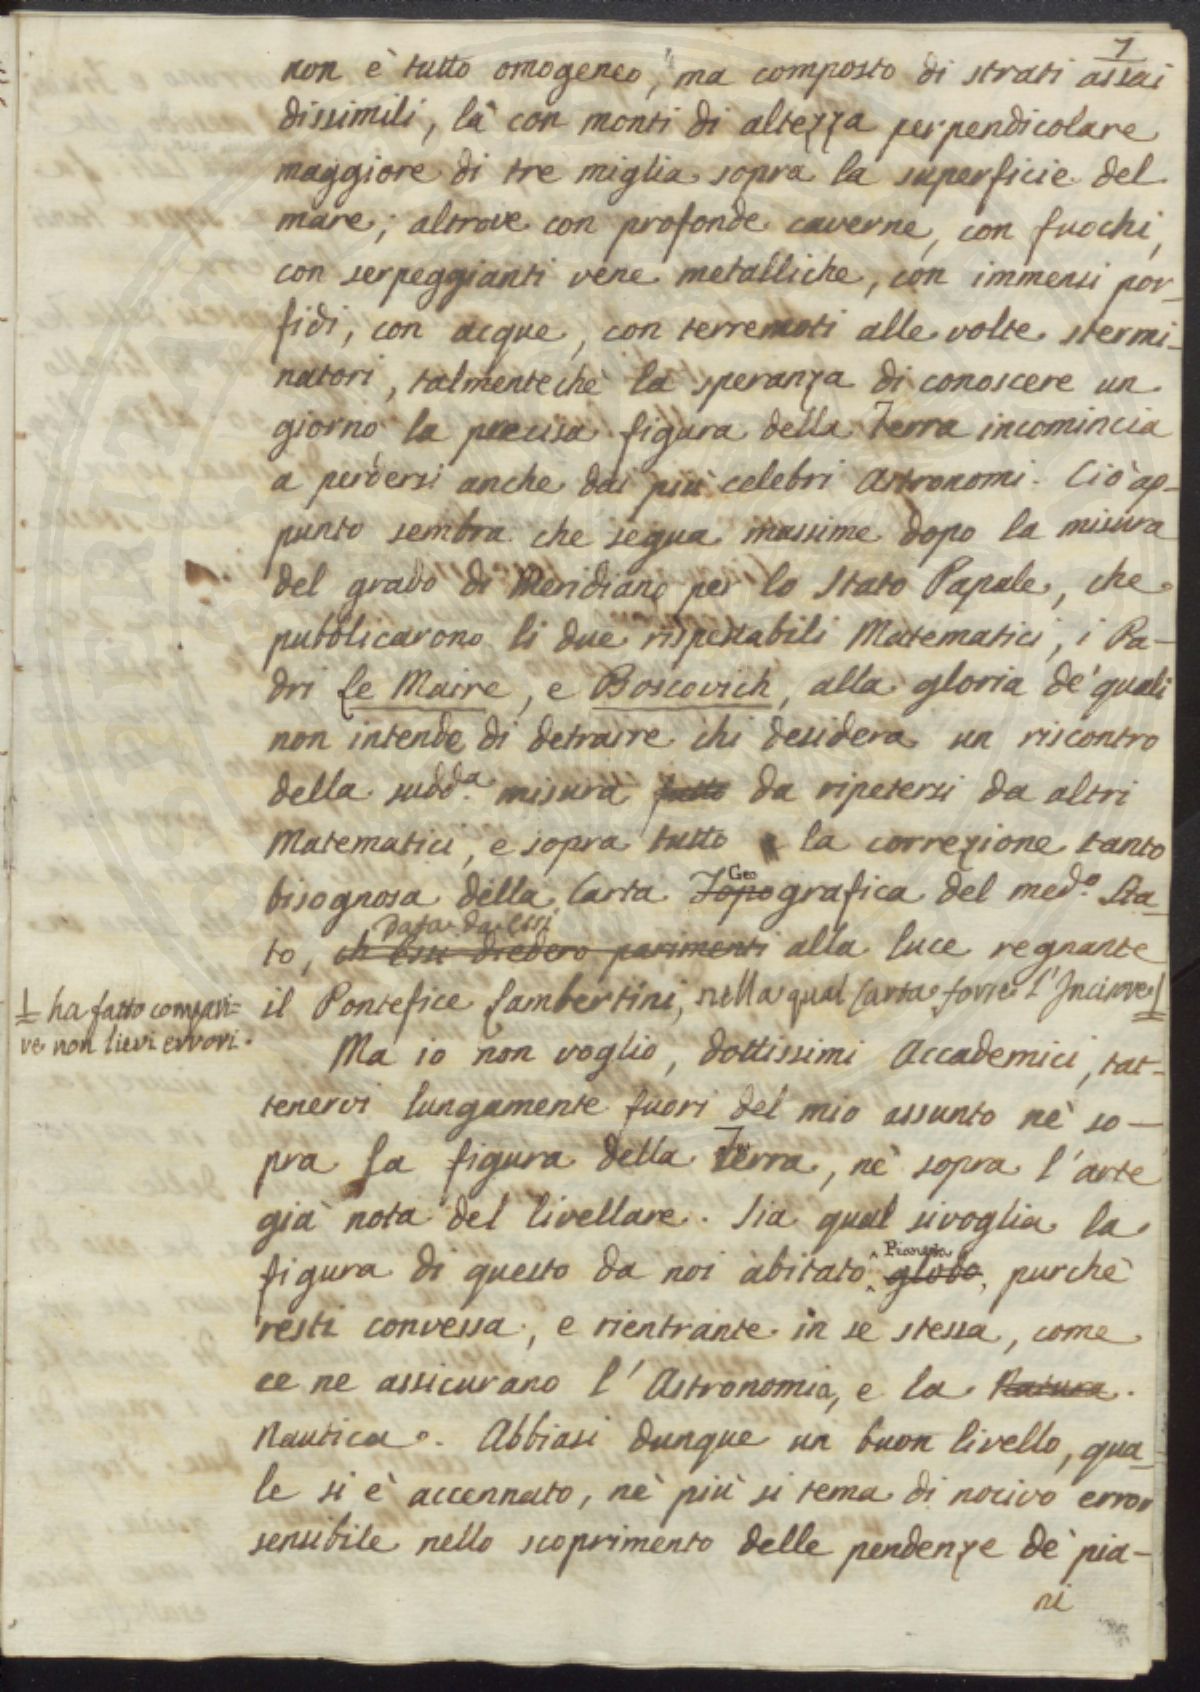 7
non è tutto omogeneo, ma composto di strati assai
dissimili, là con monti di altezza perpendicolare
maggiore di tre miglia sopra la superficie del
mare; altrove con profonde caverne, con fuochi,
con serpeggianti vene metalliche, con immensi por-
fidi, con acque, con terremoti alle volte stermi-
natori, talmenteche la speranza di conoscere un
giorno la precisa figura della Terra incomincia
a perdersi anche dai più celebri Astronomi. Ciò ap-
punto sembra che segua massime dopo la misura
del grado di Meridiano per lo Stato Papale, che
pubblicarono li due rispettabili Matematici, i Pa-
dri Le Maire, e Boscovich, alla gloria de' quali
non intende di detrarre chi desidera un riscontro
della sudd.a misura fatto da ripetersi da altri
Matematici, e sopra tutto la correzione tanto
Geo
bisognosa della Carta Topografica del med.o Sta-
data da essi
to, ch'essi diedero parimenti alla luce regnante
il Pontefice Lambertini, nella qual Carta forse l'Incisore
ha fatto compari-
re non lievi errori.
Ma io non voglio, dottissimi Accademici, trat-
tenervi lungamente fuori del mio assunto nè so-
pra la figura della Terra, nè sopra l'arte
già nota del livellare. Sia qual sivoglia la
Pianeta
figura di questo da noi abitato globo, purchè
resti convessa, e rientrante in se stessa, come
ce ne assicurano l'Astronomia, e la Natura
Nautica. Abbiasi dunque un buon livello, qua-
le si è accennato, nè più si tema di nocivo error
sensibile nello scoprimento delle pendenze de' pia-
ni